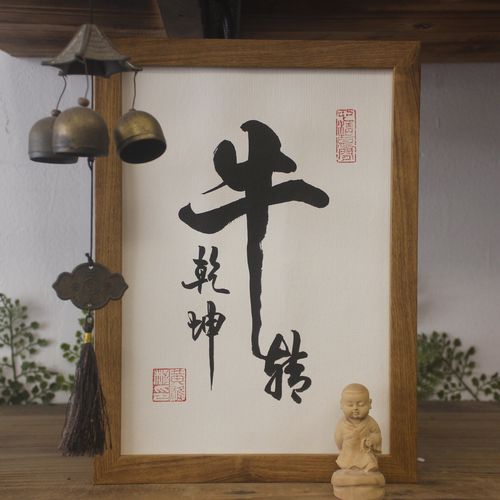 牛转
乾坤